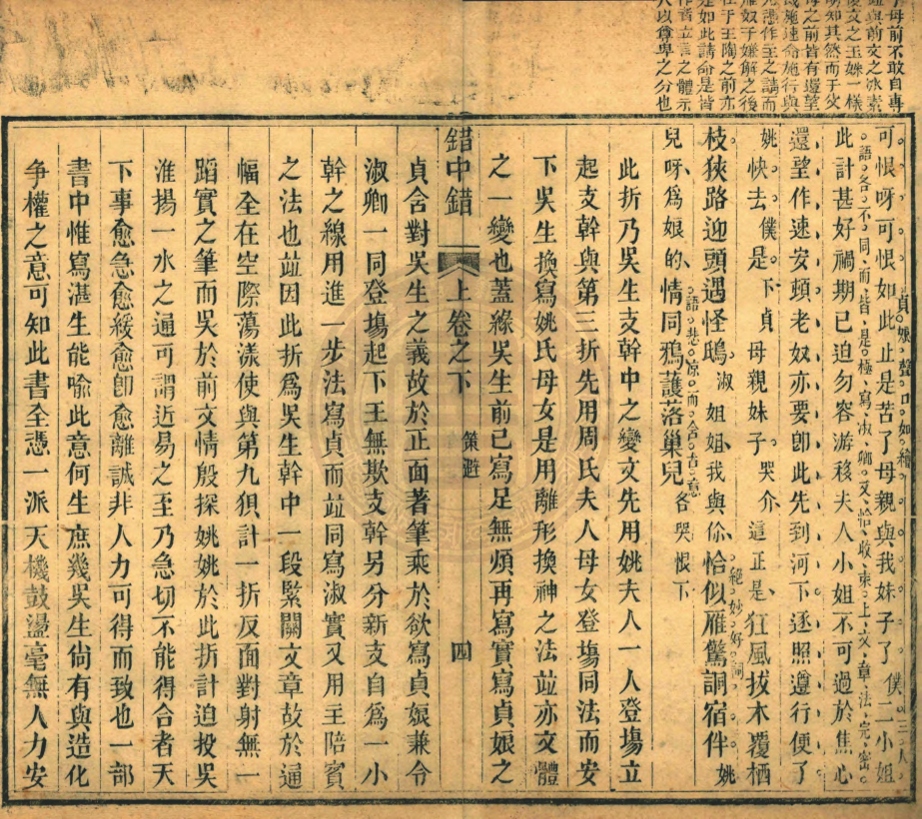 子母前不敢自專
與前文之冰素
後文之玉姝一樣
明知其然而于父
母之前皆有還望
速施速命施行與
憑作主之請而
奴子嫌解之後
在于王陶之前亦
是如此請命是皆
作者立言之體示
人以尊卑之分也
可恨呀可恨如此止是苦了母親與我妹子了僕二小姐
貞娘聲口如繪
以三人
語各不同而皆是極寫淑卿又恰收束上文章法完密
此計甚好禍期已迫勿容游移夫人小姐不可過於焦心
還望作速安頓老奴亦要卽此先到河下逐照遵行便了
姚快去僕是下貞母親妹子哭介這正是狂風拔木覆栖
枝狹路迎頭遇怪鴟淑姐姐我與你恰似雁驚詷宿伴姚
絕妙好詞
語悲凉而含吉意
兒呀爲娘的情同鴉護落巢兒各哭恨下
此折乃吳生支幹中之變文先用姚夫人一人登塲立
起支幹與第三折先用周氏夫人母女登塲同法而安
下吳生換寫姚氏母女是用離形換神之法竝亦文體
之一變也蓋緣吳生前已寫足無煩再寫實寫貞娘之
錯中錯
上卷之下
策避
四
貞舍對吳生之義故於正面著筆乘於欲寫貞娘兼令
淑卿一同登塲起下王無欺支幹另分新支自爲一小
幹之線用進一步法寫貞而竝同寫淑實又用主陪賓
之法也竝因此折爲吳生幹中一段緊關文章故於通
幅全在空際蕩漾使與第九狽計一折反面對射無一
蹈實之筆而吳於前文情殷探姚姚於此折計迫投吳
淮揚一水之通可謂近易之至乃急切不能得合者天
下事愈急愈緩愈卽愈離誠非人力可得而致也一部
書中惟寫湛生能喻此意何生庶幾吳生尙有與造化
争權之意可知此書全憑一派天機鼓盪毫無人力安